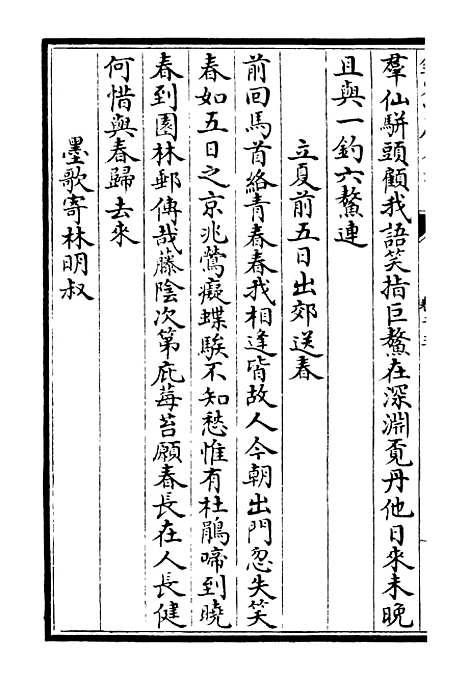 羣仙駢頭顧我語笑指巨鰲在深淵覔丹他日來未晚
且與一釣六鰲連
立夏前五日出郊送春
前回馬首絡青春春我相逢皆故人今朝出門忽失笑
春如五日之京兆鶯癡蝶騃不知愁惟有杜鵑啼到曉
春到園林郵傳哉藤陰次第庇莓苔願春長在人長健
何惜與春歸去來
墨歌寄林明叔